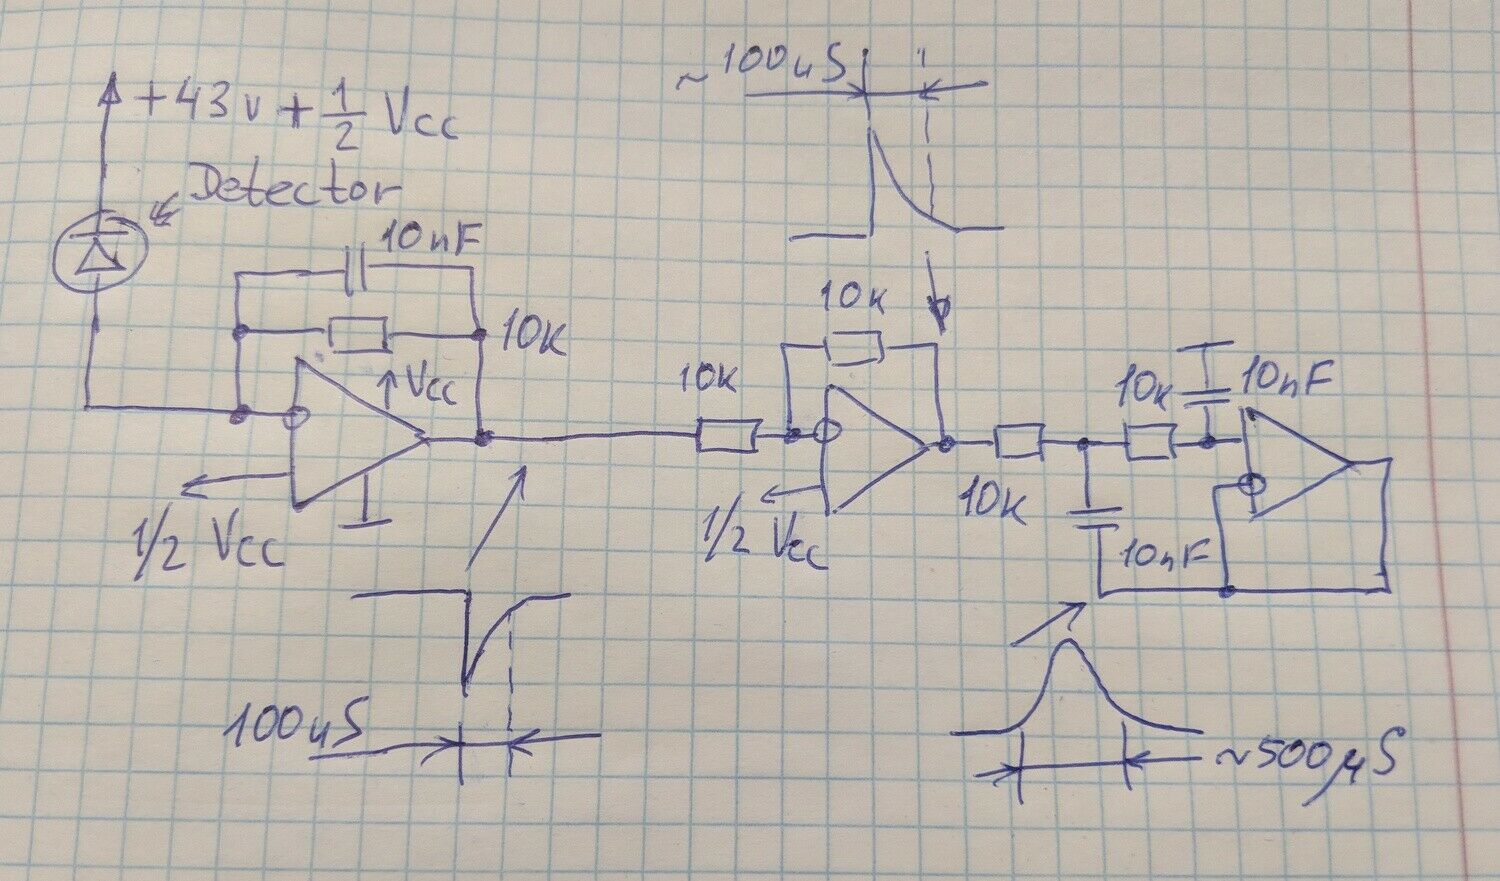 ~100uS
+43v + 1/2 Vcc
Detector
10nF
10k
Vcc
1/2 Vcc
10k
10k
1/2 Vcc
10k
10k
10nF
10nF
100uS
~500μS